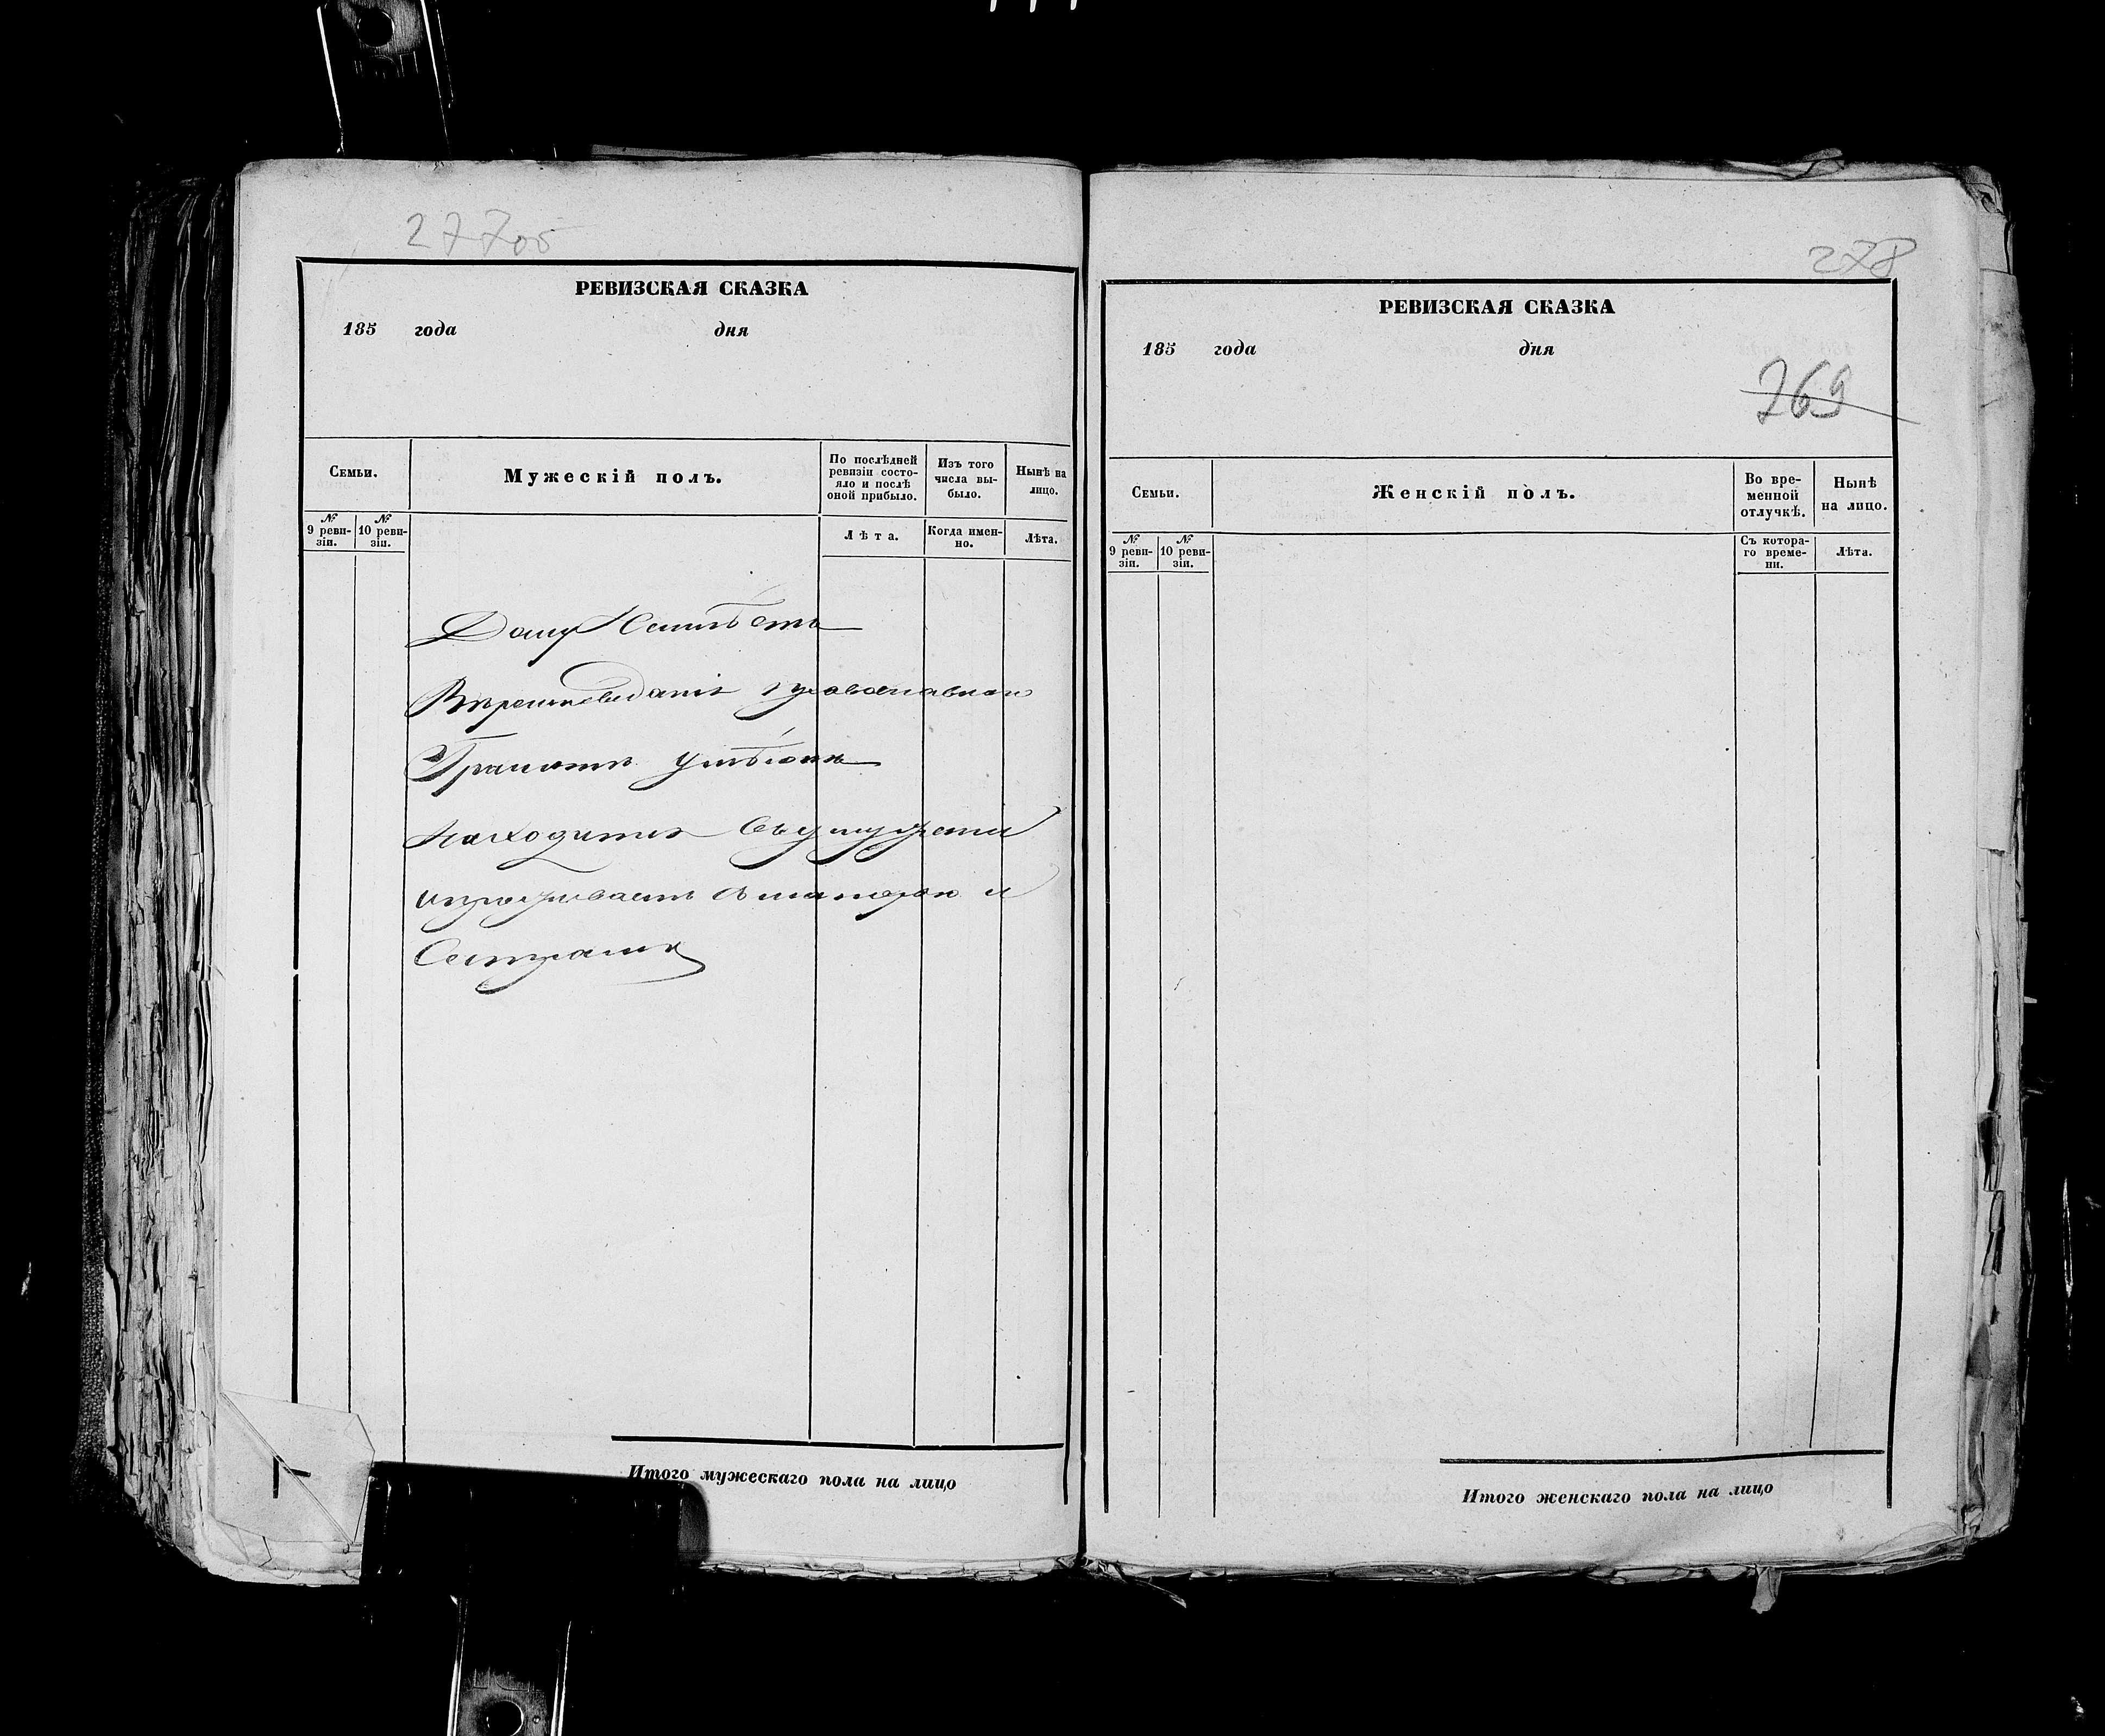 277об
РЕВИЗСКАЯ СКАЗКА
185 года дня
Семьи.
Мужескій полъ.
По послѣдней ревизіи состо-
яло и послѣ
оной прибыло.
Изъ того
числа вы-
было.
Нынѣ на
лицо.
№ 9 реви-
зіи.
№ 10 реви-
зіи.
Лѣта.
Когда имен-
но.
Лѣта.
Дому Неимѣетъ
Вѣроисповеданія православнаго
Грамотѣ умѣютъ
находится
и проживаетъ с матерью и
Сестрами
Итого мужескаго пола на лицо
278
РЕВИЗСКАЯ СКАЗКА
185 года дня
269
Семьи.
Женскій полъ.
Во вре-
менной
отлучкѣ.
Нынѣ
на лицо.
№ 9 реви-
зіи.
№ 10 реви-
зіи.
Съ котора-
го време-
ни.
Лѣта.
Итого женскаго пола на лицо